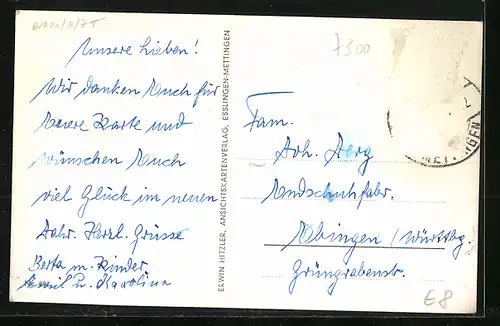 7300
Unsere Lieben!
Wir danken Euch für
Eure Karte und
wünschen Euch
viel Glück im neuen
Jahr. Herzl. Grüsse
Berta m. Kinder
Emil u. Karolina
ERWIN HITZLER, ANSICHTSKARTENVERLAG, ESSLINGEN-METTINGEN
Fam.
Joh.
Handschuhfabr.
Ebingen / Württbg.
Grüngrabenstr.
NGEN
E8